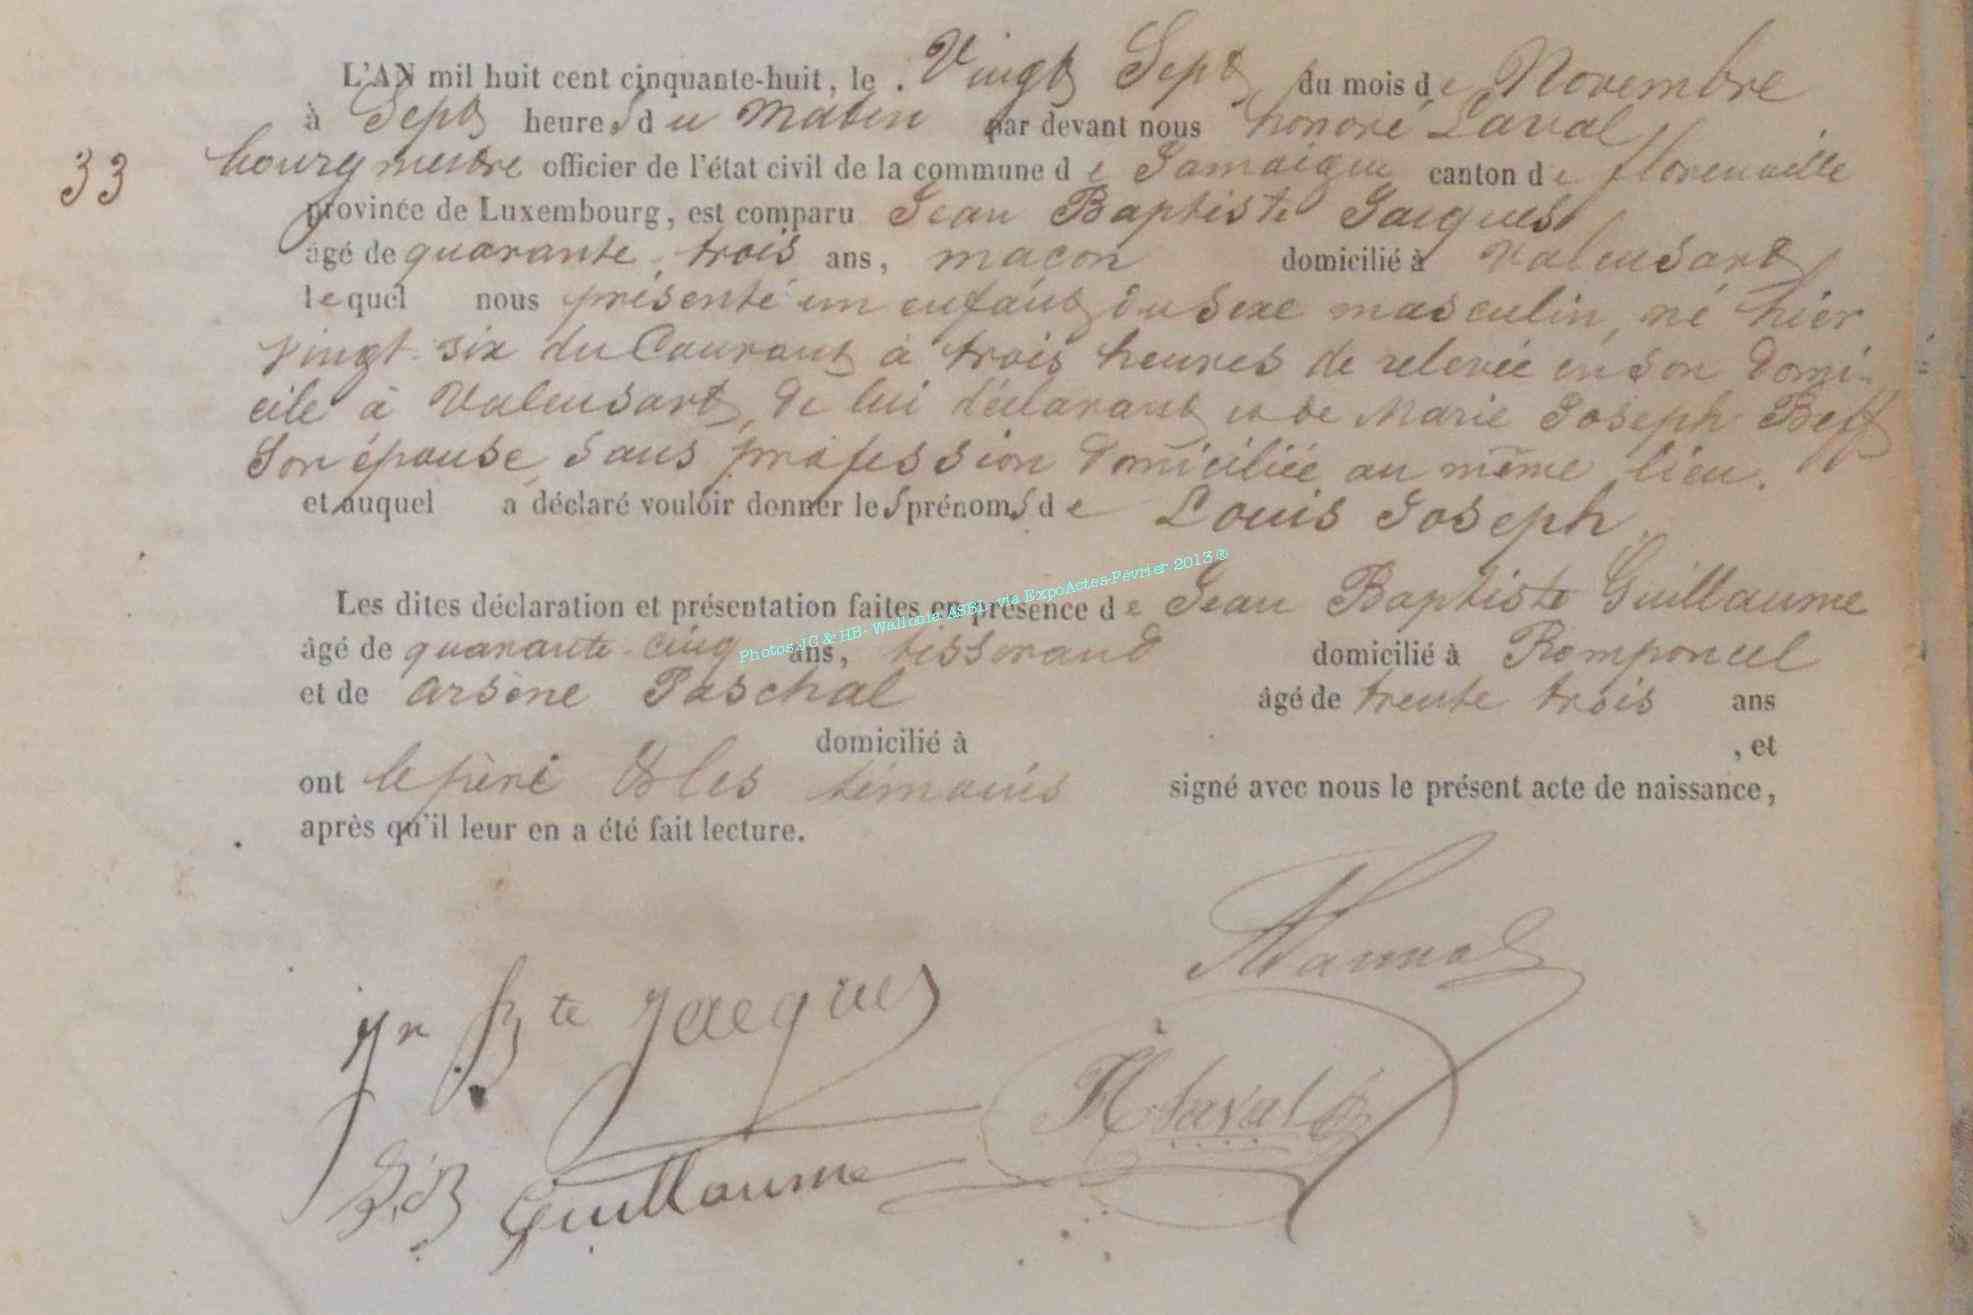 L'AN mil huit cent cinquante-huit, le Vingt Sept du mois de Novembre
à Sept heures du Matin par devant nous honoré Laval
33 bourgmestre officier de l'état civil de la commune de Jamoigne canton de florenville
province de Luxembourg, est comparu Jean Baptiste Jacques
âgé de quarante-trois ans, maçon domicilié à Valensart
lequel nous présenté un enfant du sexe masculin, né hier
vingt-six du Courant à trois heures de relevée en son Domi-
cile à Valensart, de lui déclarant et de Marie Joseph Beff
Son épouse, sans profession domiciliée au même lieu.
et auquel a déclaré vouloir donner les prénoms de Louis Joseph
Les dites déclaration et présentation faites en présence de Jean Baptiste Guillaume
âgé de quarante-cinq ans, tisserand domicilié à Romponcel
et de arsène Paschal âgé de trente trois ans
domicilié à , et
ont le père & les témoins signé avec nous le présent acte de naissance,
après qu'il leur en a été fait lecture.
Photos JG & HB- Wallonia ASBL via ExpoActes-Février 2013®
Jn Bte Jacques
H Laval
J.B Guillaume